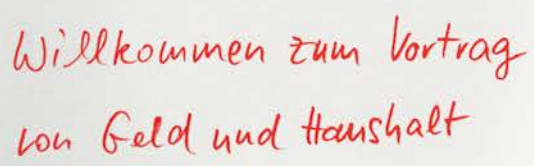 Willkommen zum Vortrag
von Geld und Haushalt